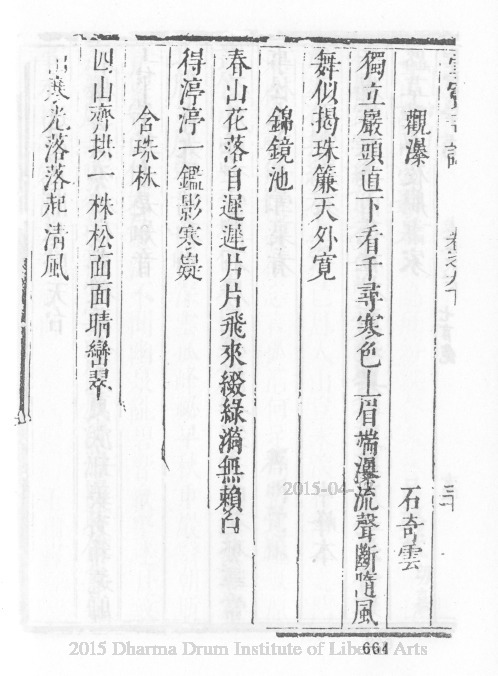 雪竇寺誌 卷之九下 三
觀瀑 石奇雲
獨立巖頭直下看千尋寒色上眉端瀑流聲斷隨風
舞似揭珠簾天外寬
錦鏡池
春山花落自遲遲片片飛來綴綠漪無賴白
得渟渟一鑑影寒
含珠林
四山齊拱一株松面面晴巒翠
寒光落落起清風
2015-04-
664
2015 Dharma Drum Institute of Liberal Arts